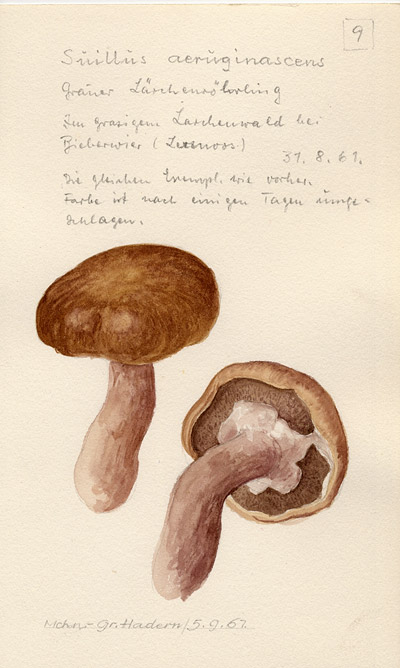 9
Suillus aeruginascens
Grauer Lärchenröhrling
Im grasigem Lärchenwald bei
Bieberwier (Lermoos)
31. 8. 61.
Die gleichen Exempl. wie vorher.
Farbe ist nach einigen Tagen umge-
schlagen.
Mchn.-Gr. Hadern / 5. 9. 61.